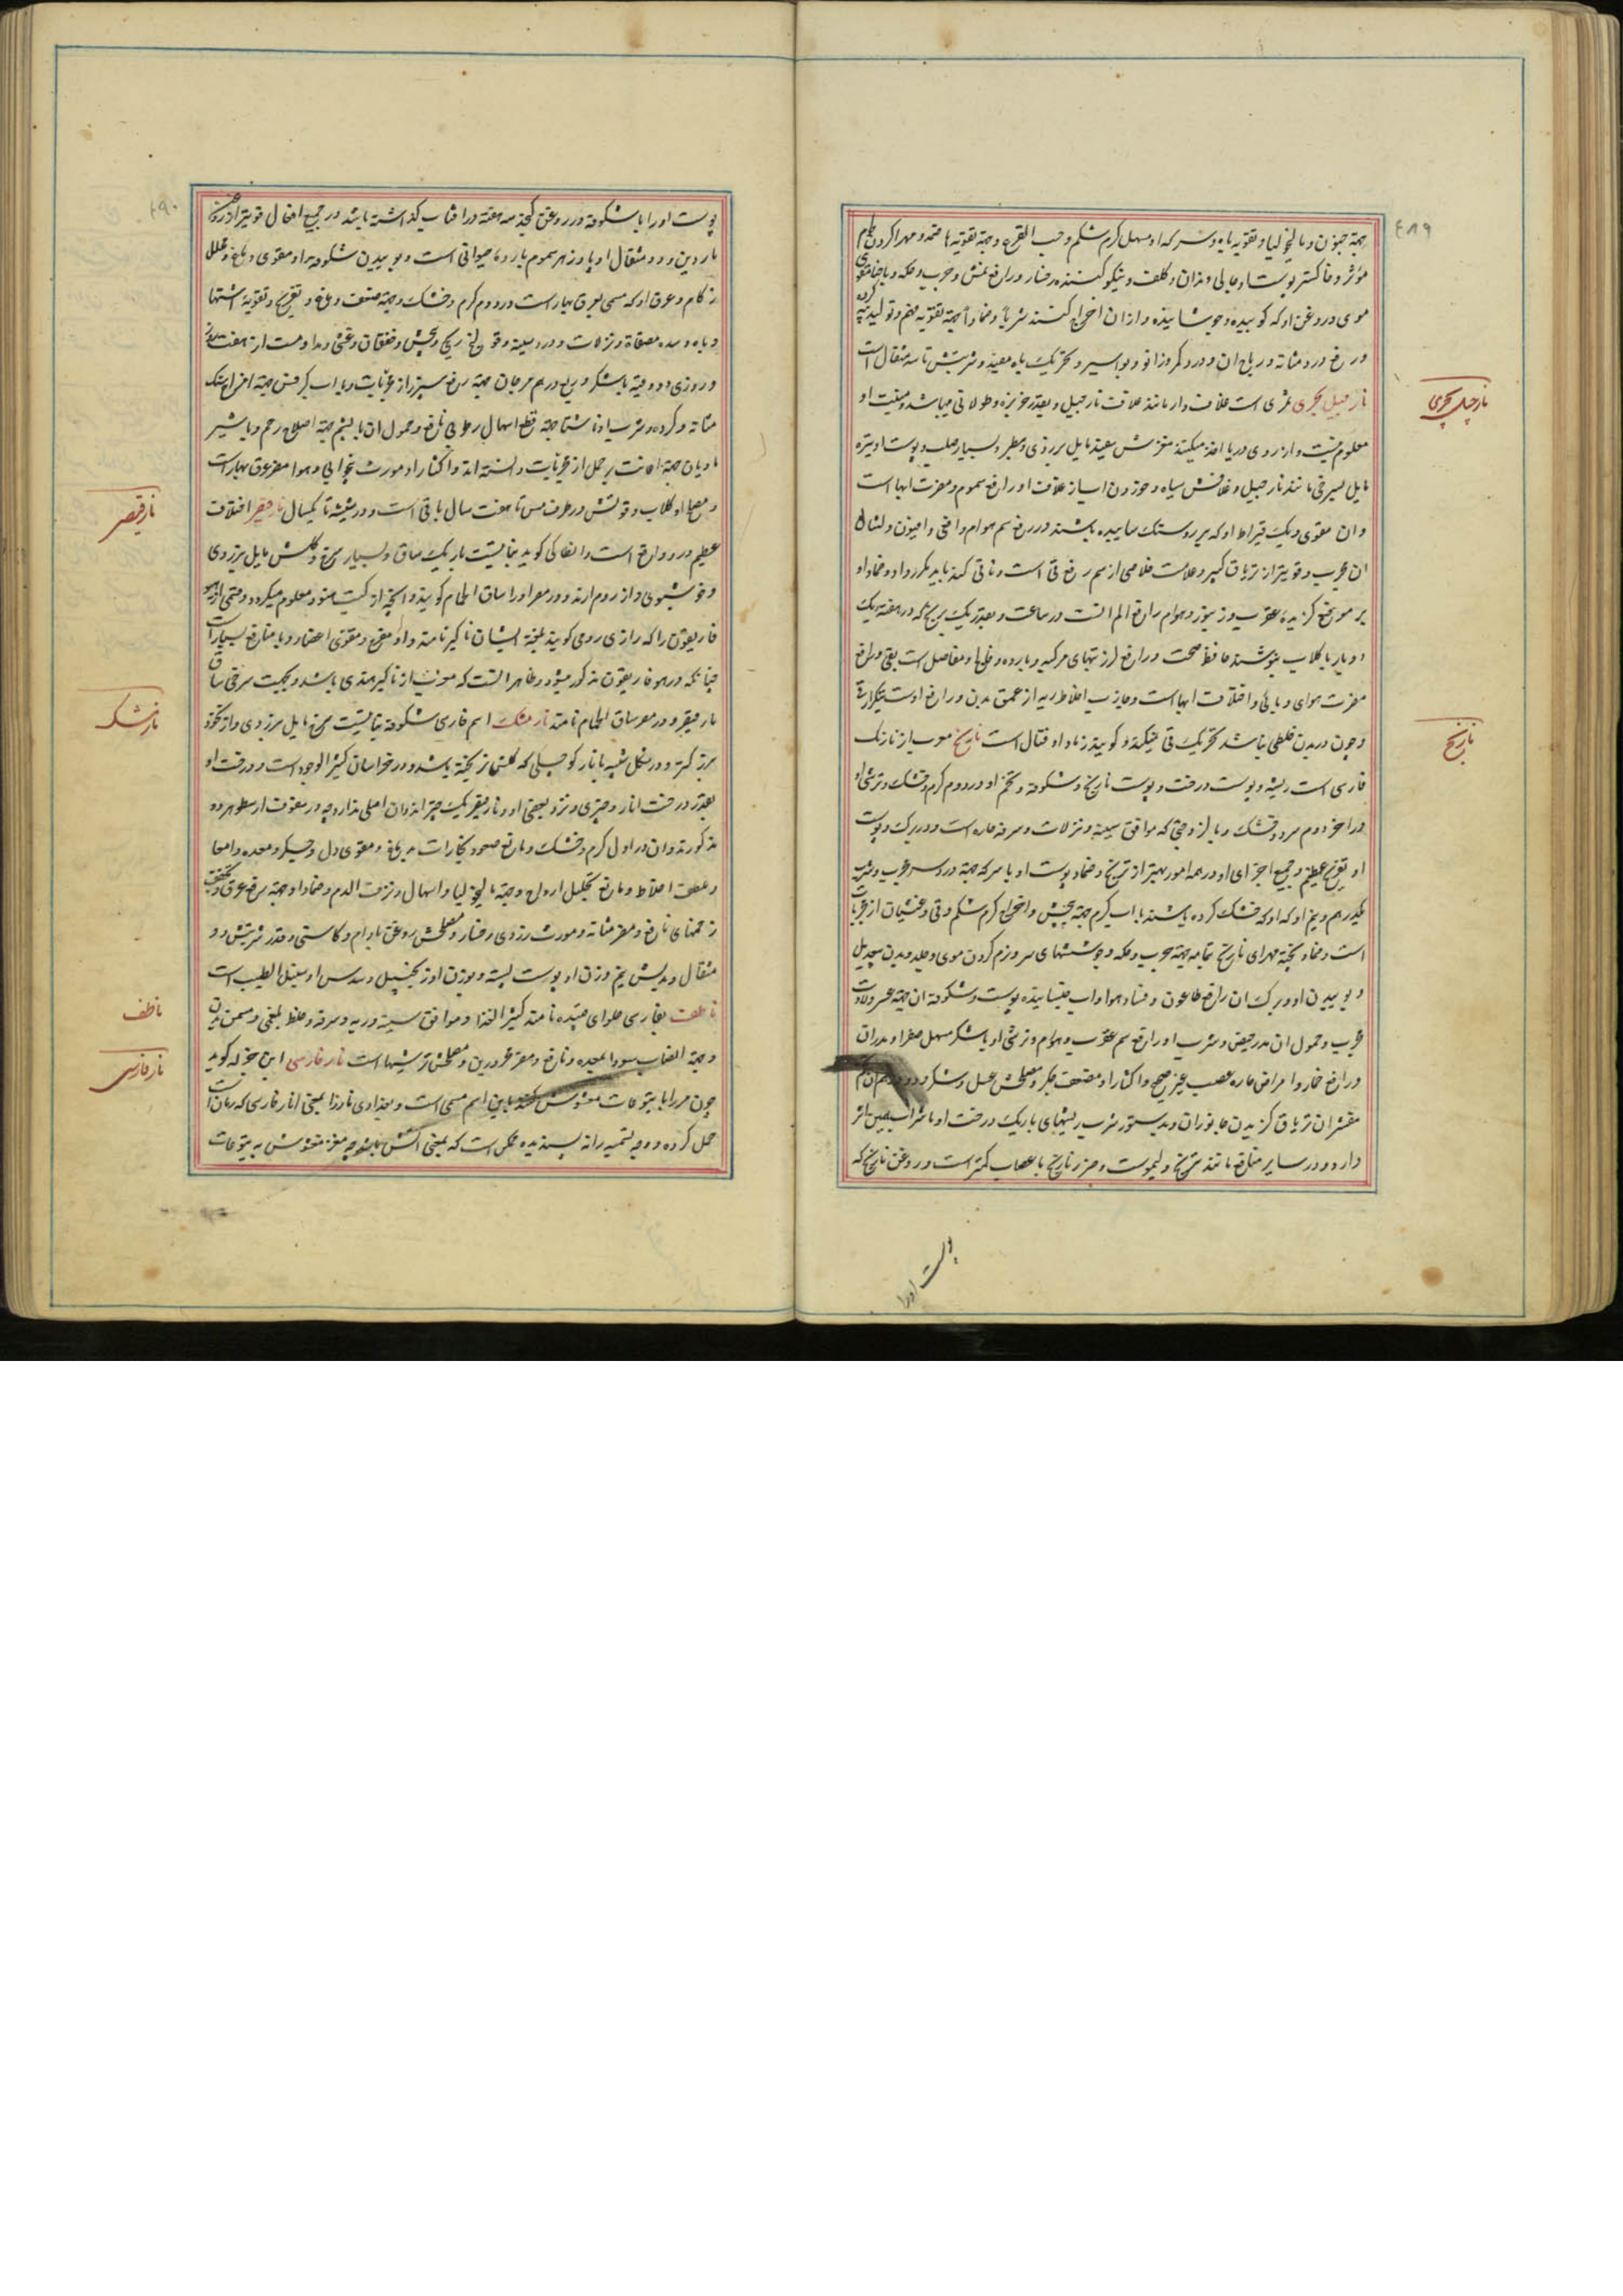 ٤٨٩
جهة جنون و مالیخولیا و تقویه باه و سرکه او مسهل کرم شکم و حب القرع و جهة تقویه هاضمه و مهرا کردن طعام
مؤثر و خاکستر پوست او جالی دندان و کلف و نیکو کننده رخسار و رافع نمش و جرب و حکه و با حنا مقوی
موی و روغن او که کوبیده و جوشانیده و ازان اخراج کنند شربا و ضمادا جهة تقویه هضم و تولید پیه کرده
و رفع درد مثانه و ریاح ان و درد کمر و زانو و بواسیر و تحریک باه مفید و شربتش تا سه مثقال است
نارجیل بحری ثمری است غلاف دار مانند غلاف نارجیل و بقدر خربزه و طولانی میباشد و منبت او
معلوم نیست و از روی دریا اخذ میکنند مغزش سفید مایل بزردی و سطبر و بسیار صلب و پوست او تیره
مایل بسرخی مانند نارجیل و غلافش سیاه و خوردن اب از غلاف او رافع سموم و مضرت ابها است
و ان مقوی و یک قیراط او که بر روی سنک ساییده باشند در رفع سم هوام و افعی و افیون و امثال
ان مجرب و قویتر از تریاق کبیر و علامت خلاصی از سم رفع قی است و تا قی کند باید مکرر داد و ضماد او
بر موضع کزیده عقرب و زنبور و هوام رافع الم انست در ساعت و بقدر یک برنج که در هفته یک
دو بار با کلاب بنوشند حافظ صحت و رافع لرز تبهای مرکبه و بارده و فلج و مفاصل است بقی و رافع
مضرت هوای وبائی و اختلاف ابها است و جاذب اخلاط ردیه از عمق بدن و رافع اوست بتکرار قی
و چون در بدن خلطی نباشد تحریک قی نمیکند و کویند زیاد او قتال است نارنج معرب از نارنک
فارسی است ریشه و پوست درخت و پوست نارنج و شکوفه و تخم او در دوم کرم و خشک و ترشی او
در اخر دوم سرد و خشک و با لزوجتی که موافق سینه و نزلات و سرفه حاره است و در برک و پوست
او تفریح عظیم و جمیع اجزای او در همه امور بهتر از ترنج و ضماد پوست او با سرکه جهة درد سر مجرب و شرب
یکدرهم و نیم او که او که خشک کرده باشند با اب کرم جهة پیچش و اخراج کرم شکم و قی و غثیان از مجربات
است و ضماد پخته مهرای نارنج بتمامه جهة جرب و حکه و جوششهای سر و نرم کردن موی و جلد بدن بیعدیل
و بوییدن او و برک ان رافع طاعون و فساد هوا و اب خیسانیده پوست و شکوفه ان جهة عسر ولادت
مجرب و حمول ان مدر حیض و شرب او رافع سم عقرب و هوام و ترشی او با شکر مسهل صفرا و مدر ان
و رافع خمار و امراض حاره عصب غیر صحیح و اکثار او مضعف جکر و مصلحش عسل و شکر و دو درهم از تخم
مقشر ان تریاق کزیدن جانوران و بدستور شرب ریشهای باریک درخت او با شراب همین اثر
دارد و در سایر منافع مانند ترنج و لیموست و ضرر نارنج باعصاب کمتر است و روغن نارنج که
پوست اورا
نارجیل بحری
نارنج
٤٩٠
پوست اورا با شکوفه در روغن کنجد سه هفته در افتاب کذاشته باشند در جمیع افعال قویتر از روغن
ناردین و دو مثقال او پادزهر سموم بارده حیوانی است و بوییدن شکوفه او مقوی دماغ و محلل
زکام و عرق او که مسمی بعرق بهار است در دوم کرم و خشک و جهة ضعف دماغ و تفریح و تقویه اشتها
و باه و سده مصفاة و نزلات و درد سینه و قولنج ریحی و پیچش و خفقان و غشی و مداومت او هفت روز
و روزی دو وقیه با شکر و ربع درهم مرجان جهة رفع سپرز از مجربات و با اب کرفس جهة اخراج سنک
مثانه و کرده و شرب او ناشتا جهة قطع اسهال رطوبی نافع و حمول ان با پشم جهة اصلاح رحم و با شیر
مادیان جهة اعانت بر حمل از مجربات دانسته اند و اکثار او مورث بیخوابی و هوا مضر عرق بهار است
و مصلح او کلاب و قوتش در ظرف مس تا هفت سال باقی است و در شیشه تا یکسال نارقیصر اختلاف
عظیم درو واقع است و انطاکی کوید نباتیست باریک ساق و بسیار سرخ و کلش مایل بزردی
و خوشبوی و از روم ارند و در مصر اورا ساق الحمام کویند و انچه از کتب معلوم میکردد
فاریقون را که رازی رومی کویند بلغة ایشان ناکیر نامند و او مفرح و مقوی اعضا و با منافع بسیار است
چنانکه در هوفاریقون مذکور میشود و ظاهر انست که معرب از ناکیر هندی باشد و بجهت سرخی ساق
نارقیصر و در مصر ساق الحمام نامند نارمشک اسم فارسی شکوفه نباتیست سرخ مایل بزردی و از نخود
بزرکتر و در شکل شبیه بانار کوچکی که کلش از نریخته باشد و در خراسان کثیر الوجود است و درخت او
بقدر درخت انار و چیزی و نزد بعضی او و نارقیصر یک چیز اند و ان اصلی ندارد چه در صفت ارسطو هر دو
مذکورند و ان در اول کرم و خشک و مانع صعود بخارات بدماغ و مقوی دل و جکر و معده و امعا
و ملطف اخلاط و مانع تحلیل ارواح و جهة مالیخولیا و اسهال و نزف الدم و ضماد او جهة رفع عرق و تجفیف
زخمهای نافع و مضر مثانه و مورث زردی رخسار و مصلحش روغن بادام و کاسنی و قدر شربتش دو
مثقال و بدلش نیم وزن او پوست پسته و بوزن او زنجبیل و سدس او سنبل الطیب است
ناطف بفارسی حلوای قبیده نامند کثیر الغذا و موافق سینه و ریه و سرفه و خلط بلغمی و مسمن بدن
و جهة انصباب سودا بمعده نافع و مضر محرورین و مصلحش ترشیها است نار فارسی ابن جزله کوید
چون مررا با یتوعات مغشوش کنند باین اسم مسمی است و بغدادی نار را بمعنی انار فارسی که رمان است
حمل کرده و وجه تسمیه را نه پسندیده ممکن است که بمعنی اتش باشد چه مغشوش به یتوعات
نارقیصر
نارمشک
ناطف
نارفارسی